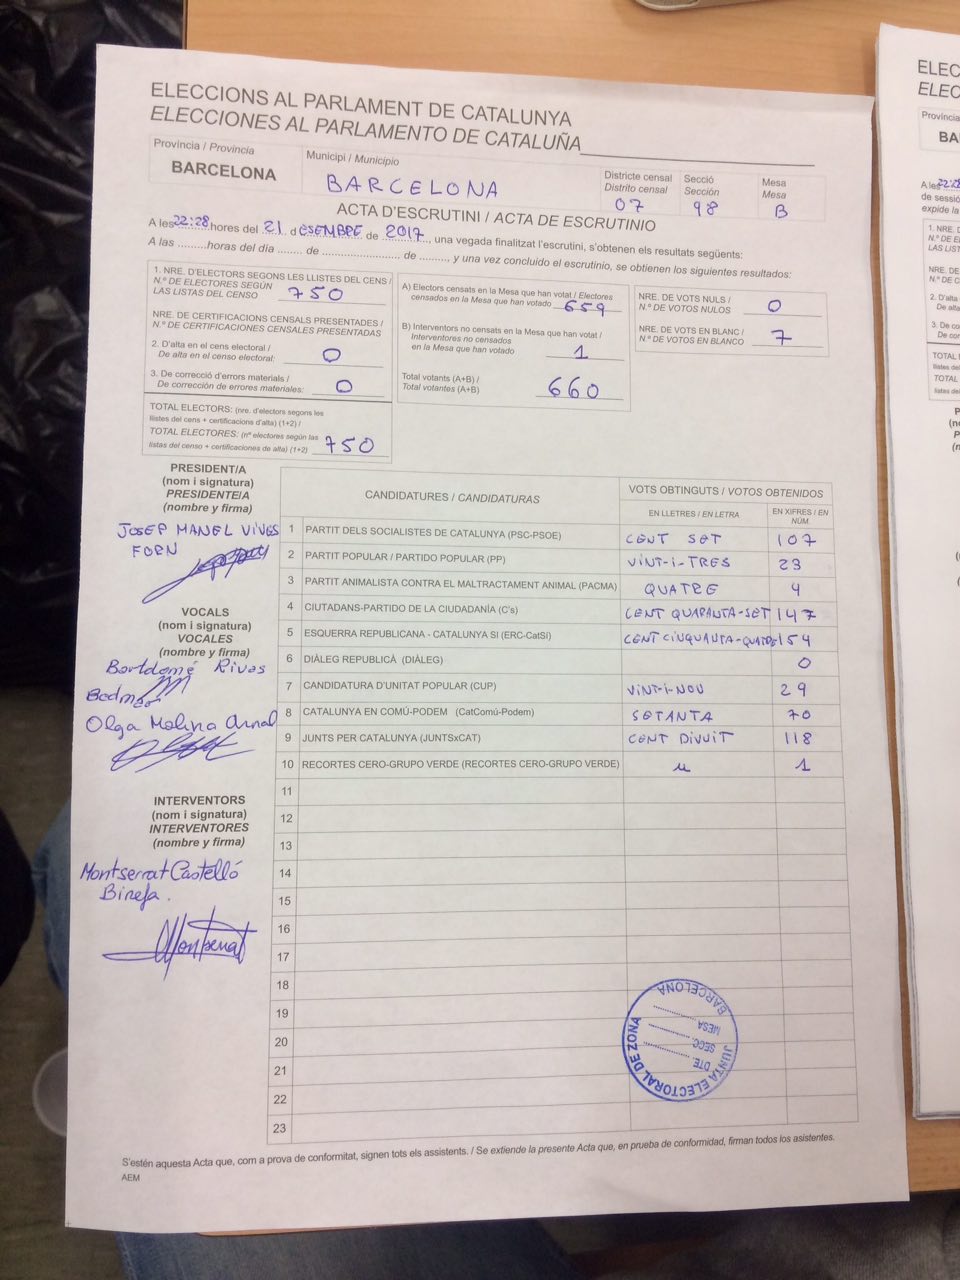 ELECCIONS AL PARLAMENT DE CATALUNYA
ELECCIONES AL PARLAMENTO DE CATALUÑA
Província / Provincia
BARCELONA
Municipi / Municipio
BARCELONA
Districte censal
Distrito censal
07
Secció
Sección
98
Mesa
Mesa
B
ACTA D'ESCRUTINI / ACTA DE ESCRUTINIO
A les 22:28 hores del 21 d ESEMBRE de 2017, una vegada finalitzat l'escrutini, s'obtenen els resultats següents:
A las .........horas del día ....... de ........................ de ........, y una vez concluido el escrutinio, se obtienen los siguientes resultados:
1. NRE. D'ELECTORS SEGONS LES LLISTES DEL CENS /
N.º DE ELECTORES SEGÚN
LAS LISTAS DEL CENSO 750
NRE. DE CERTIFICACIONS CENSALS PRESENTADES /
N.º DE CERTIFICACIONES CENSALES PRESENTADAS
2. D'alta en el cens electoral /
De alta en el censo electoral: 0
3. De correcció d'errors materials /
De corrección de errores materiales: 0
TOTAL ELECTORS: (nre. d'electors segons les
llistes del cens + certificacions d'alta) (1+2) /
TOTAL ELECTORES: (nº electores según las
listas del censo + certificaciones de alta) (1+2) 750
A) Electors censats en la Mesa que han votat / Electores
censados en la Mesa que han votado 659
B) Interventors no censats en la Mesa que han votat /
Interventores no censados
en la Mesa que han votado 1
Total votants (A+B) /
Total votantes (A+B) 660
NRE. DE VOTS NULS /
N.º DE VOTOS NULOS 0
NRE. DE VOTS EN BLANC /
N.º DE VOTOS EN BLANCO 7
PRESIDENT/A
(nom i signatura)
PRESIDENTE/A
(nombre y firma)
JOSEP MANEL VIVES
FORN
VOCALS
(nom i signatura)
VOCALES
(nombre y firma)
Bartolomé Rivas
Olga Molina Arnal
INTERVENTORS
(nom i signatura)
INTERVENTORES
(nombre y firma)
Montserrat Castelló
Montserrat
CANDIDATURES / CANDIDATURAS
VOTS OBTINGUTS / VOTOS OBTENIDOS
EN LLETRES / EN LETRA
EN XIFRES / EN NÚM.
1 PARTIT DELS SOCIALISTES DE CATALUNYA (PSC-PSOE) CENT SET 107
2 PARTIT POPULAR / PARTIDO POPULAR (PP) VINT-I-TRES 23
3 PARTIT ANIMALISTA CONTRA EL MALTRACTAMENT ANIMAL (PACMA) QUATRE 4
4 CIUTADANS-PARTIDO DE LA CIUDADANÍA (C's) CENT QUARANTA-SET 147
5 ESQUERRA REPUBLICANA - CATALUNYA SI (ERC-CatSí) CENT CINQUANTA-QUATRE 154
6 DIÀLEG REPUBLICÀ (DIÀLEG) 0
7 CANDIDATURA D'UNITAT POPULAR (CUP) VINT-I-NOU 29
8 CATALUNYA EN COMÚ-PODEM (CatComú-Podem) SETANTA 70
9 JUNTS PER CATALUNYA (JUNTSxCAT) CENT DIVUIT 118
10 RECORTES CERO-GRUPO VERDE (RECORTES CERO-GRUPO VERDE) u 1
11
12
13
14
15
16
17
18
19
20
21
22
23
JUNTA ELECTORAL DE ZONA
DTE.
SECC.
MESA
BARCELONA
S'estén aquesta Acta que, com a prova de conformitat, signen tots els assistents. / Se extiende la presente Acta que, en prueba de conformidad, firman todos los asistentes.
AEM